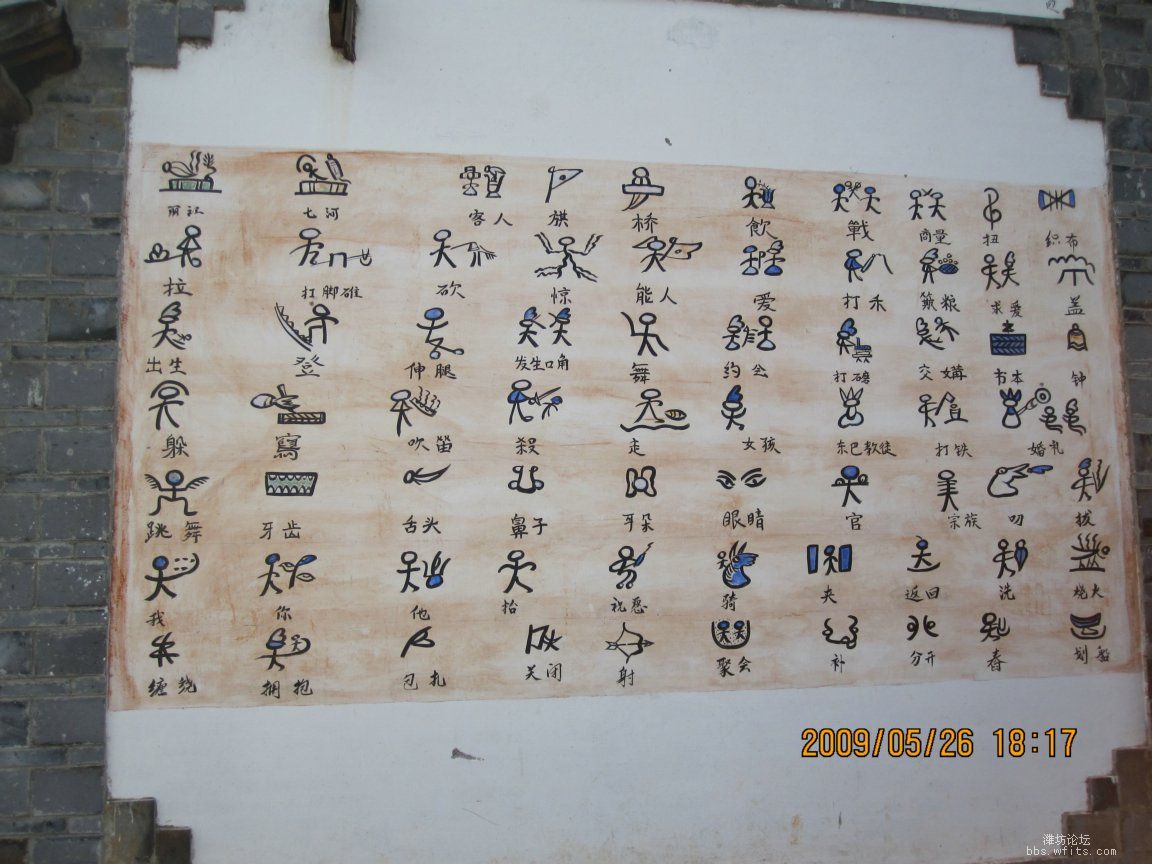 丽江 七河 客人 旗 桥 飲 戰 商量 扭 织布
拉 打脚碓 砍 惊 能人 爱 打禾 簸粮 求爱 盖
出生 登 伸腿 发生口角 舞 约会 打碑 交媾 书本 钟
躲 寫 吹笛 殺 走 女孩 东巴教徒 打铁 婚礼
跳舞 牙齿 舌头 鼻子 耳朵 眼睛 官 宗族 叨 拔
我 你 他 拾 祝愿 骑 夹 返回 洗 烧火
缠绕 拥抱 包扎 关闭 射 聚会 补 分开 舂 划船
2009/05/26 18:17
潍坊论坛
bbs.wfits.com